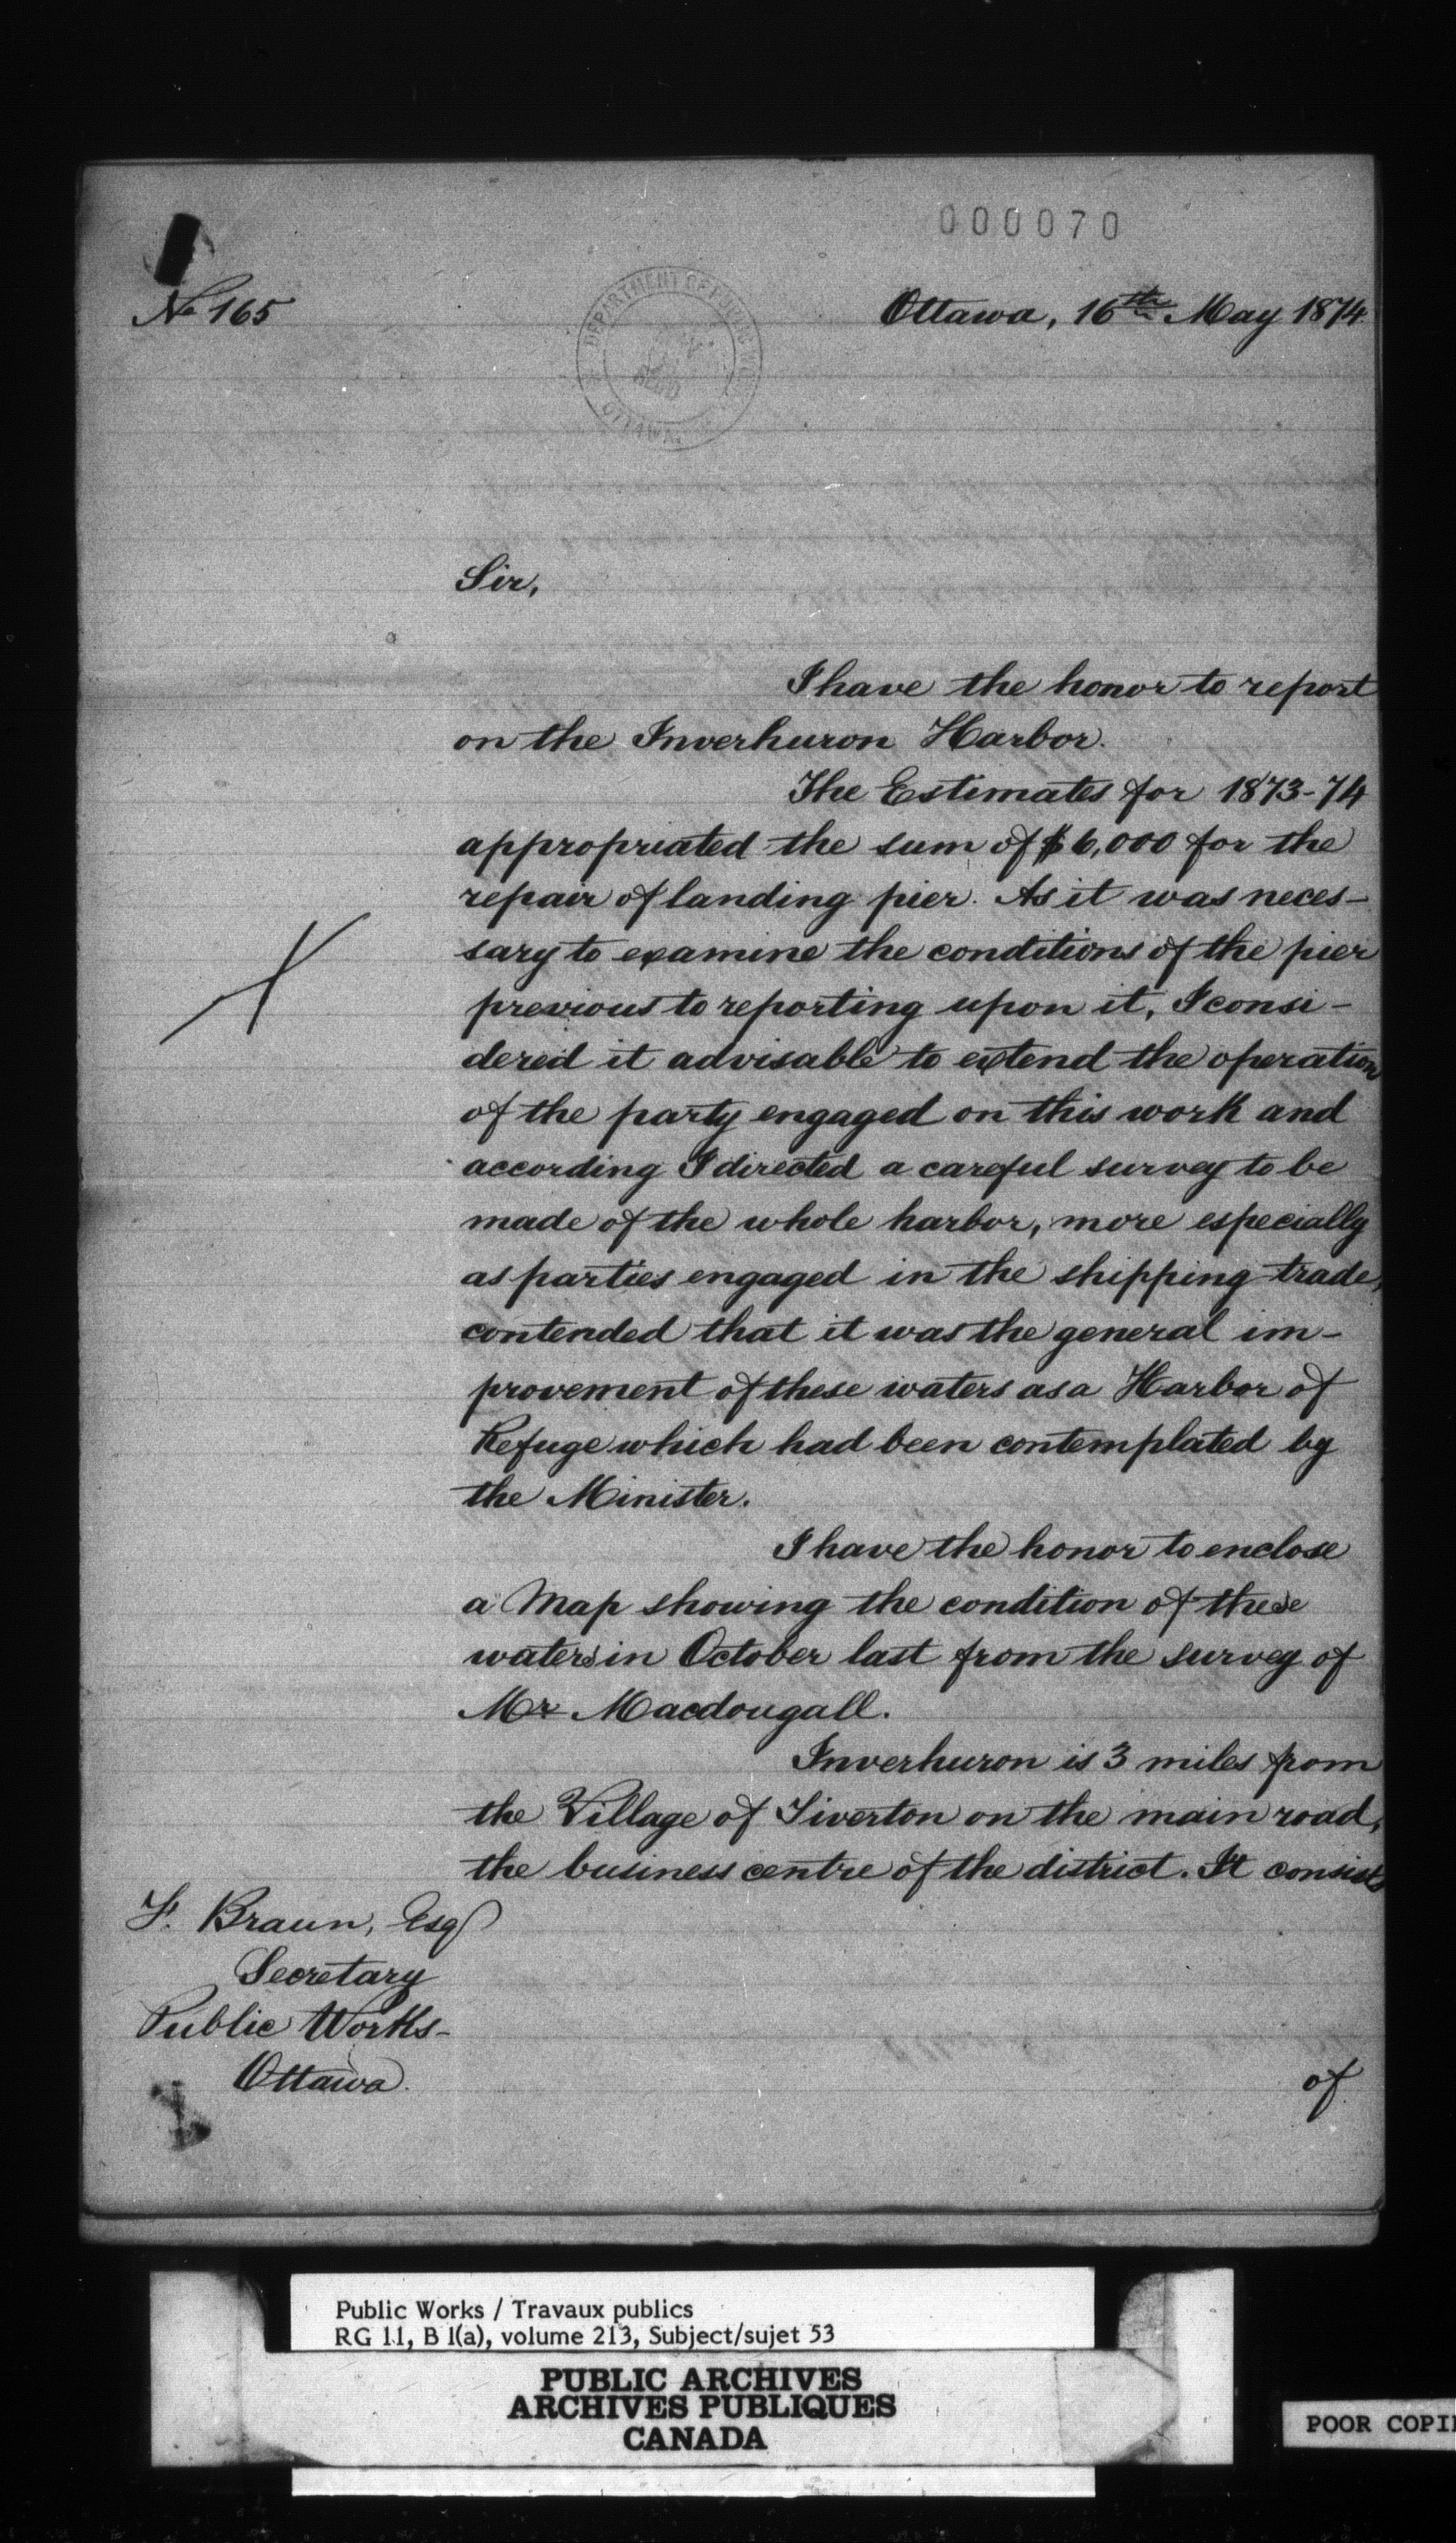 000070
No 165
DEPARTMENT OF PUBLIC WORKS
RECD
OTTAWA
Ottawa, 16th May 1874.
Sir,
I have the honor to report
on the Inverhuron Harbor.
The Estimates for 1873-74
appropriated the sum of $6,000 for the
repair of landing pier. As it was neces-
sary to examine the conditions of the pier
previous to reporting upon it, I consi-
dered it advisable to extend the operation
of the party engaged on this work and
according I directed a careful survey to be
made of the whole harbor, more especially
as parties engaged in the shipping trade,
contended that it was the general im-
provement of these waters as a Harbor of
Refuge which had been contemplated by
the Minister.
I have the honor to enclose
a Map showing the condition of these
waters in October last from the survey of
Mr Macdougall.
Inverhuron is 3 miles from
the Village of Tiverton on the main road,
the business centre of the district. It consists
F. Braun, Esq
Secretary
Public Works-
Ottawa.
of
Public Works / Travaux publics
RG 11, B 1(a), volume 213, Subject/sujet 53
PUBLIC ARCHIVES
ARCHIVES PUBLIQUES
CANADA
POOR COPI